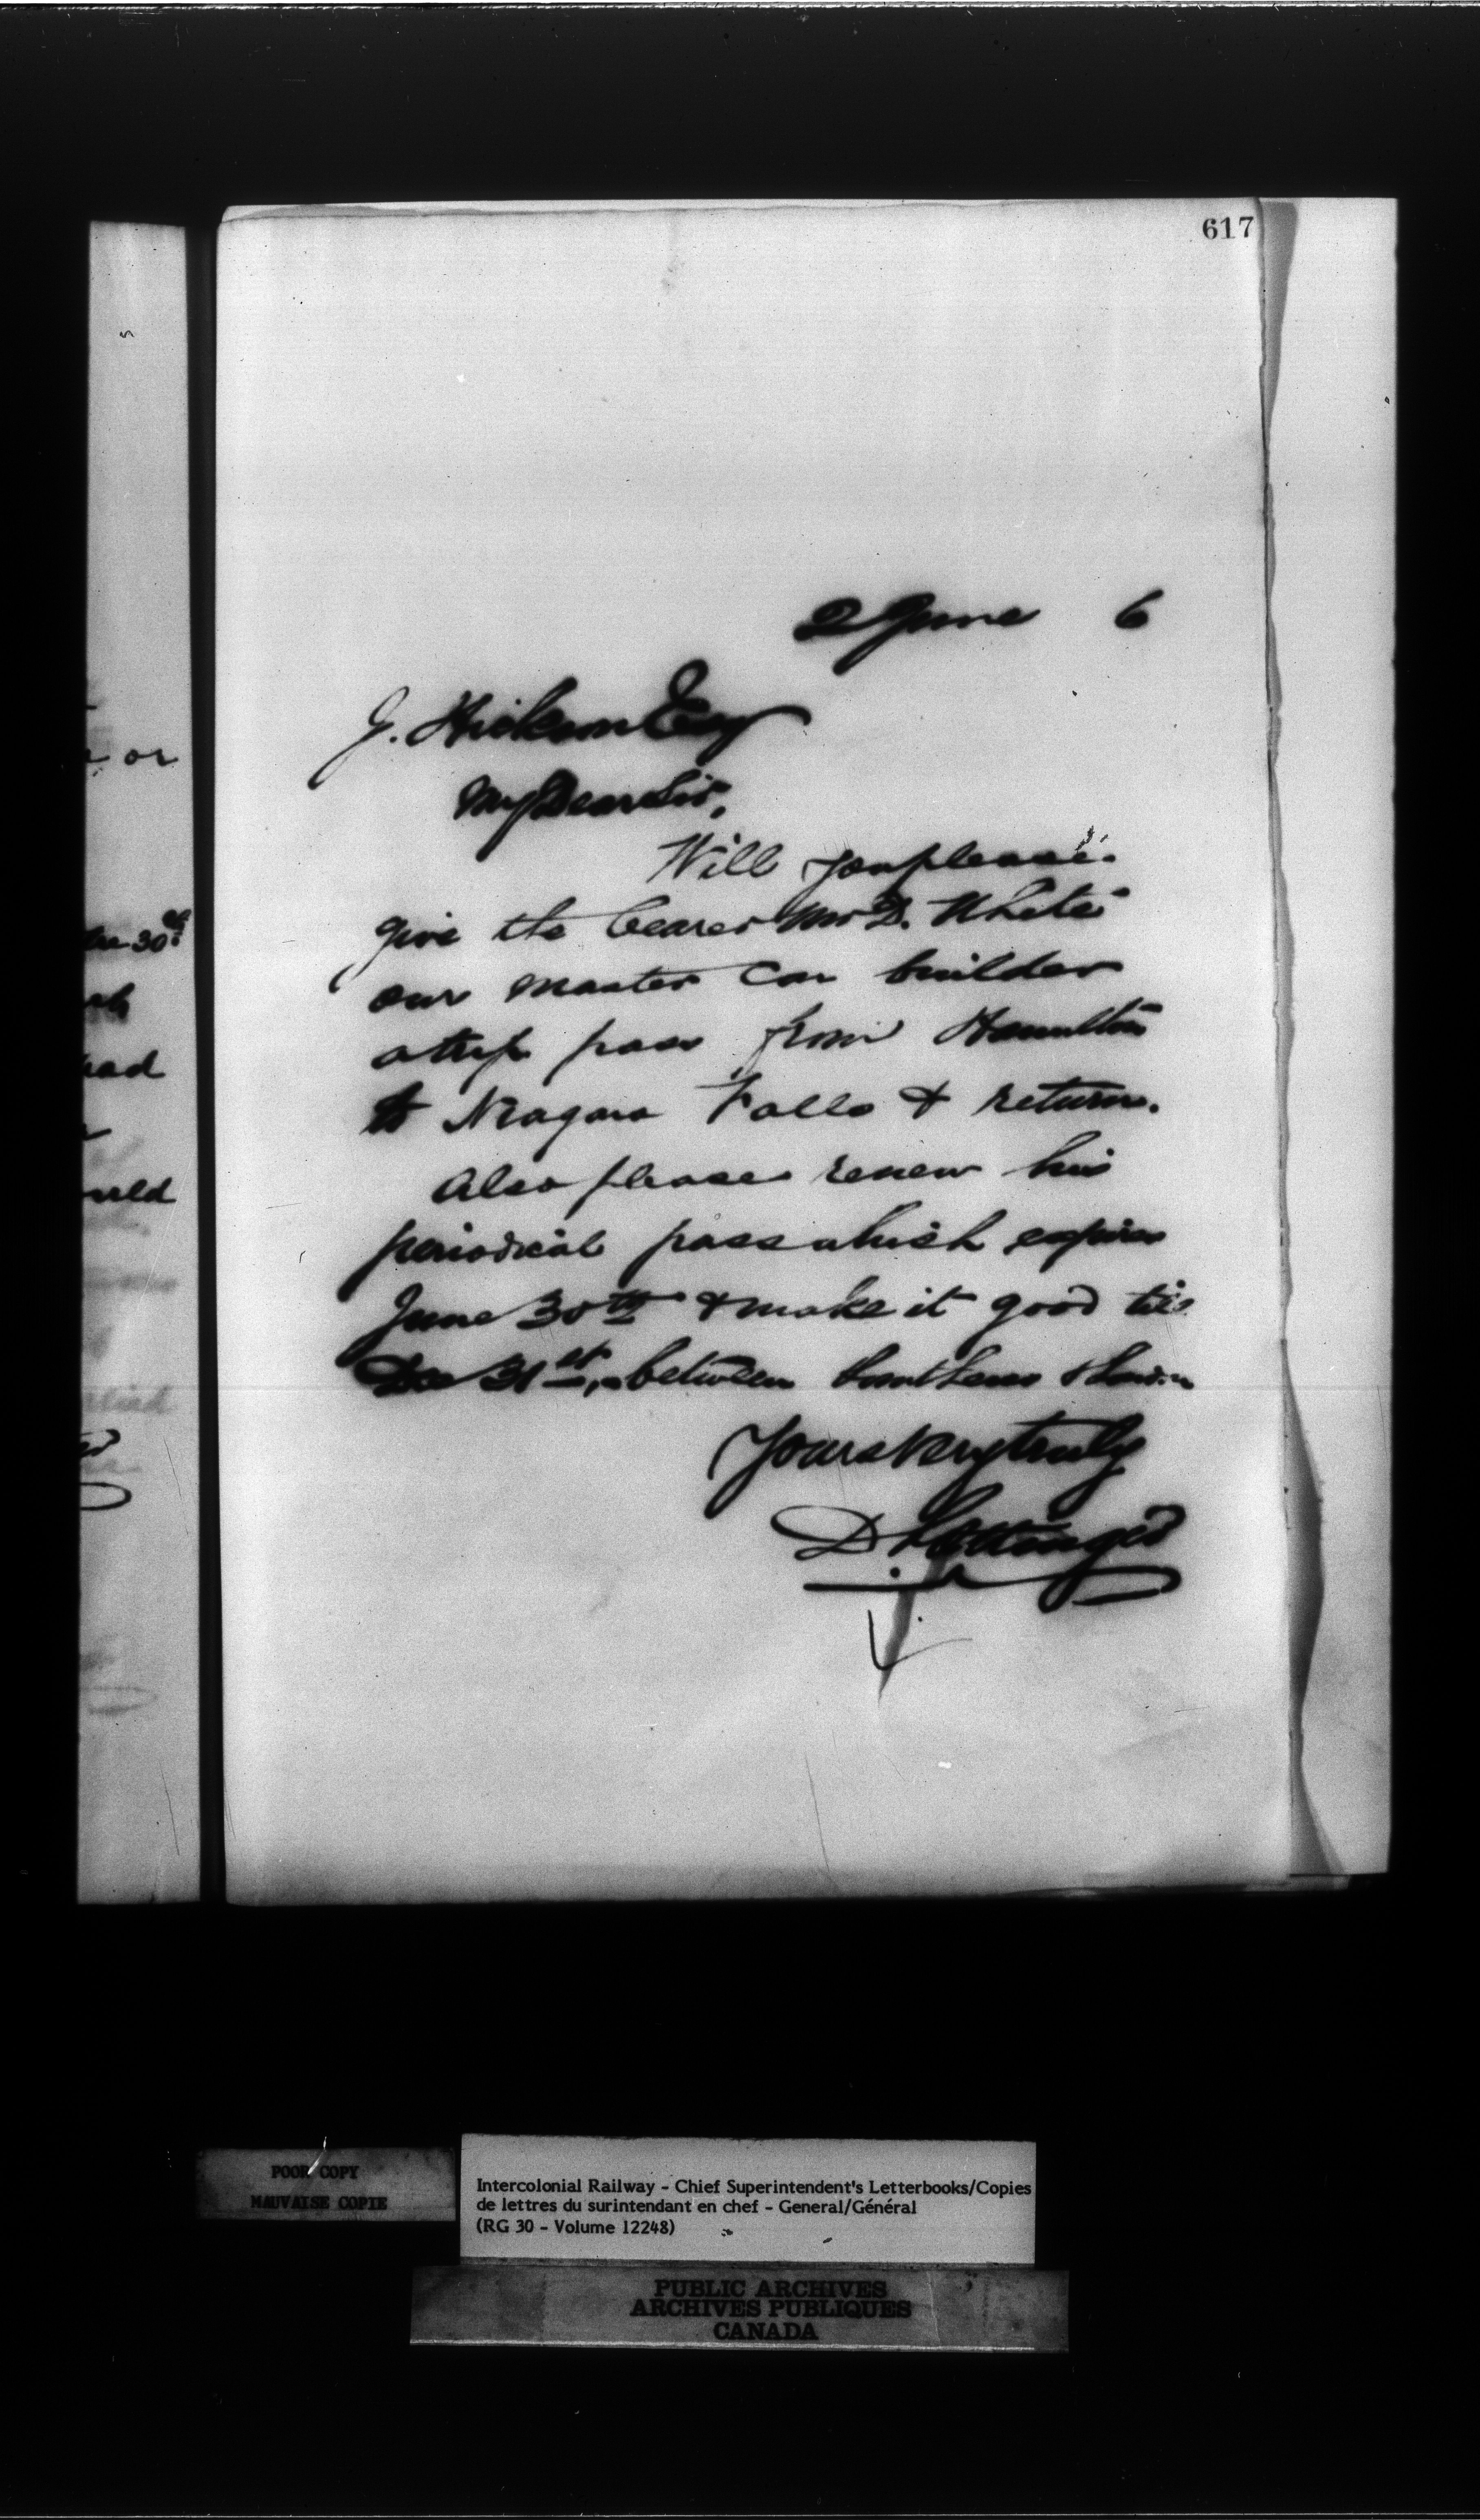 617
2 June 6
J. Hickson Esq
My Dear Sir,
Will you please
give the bearer Mr D. White
our master car builder
a trip pass from Hamilton
to Niagara Falls & return.
Also please renew his
periodical pass which expires
June 30th & make it good till
Dec 31st, between
Yours very truly
D Pottinger
or
30th
POOR COPY
MAUVAISE COPIE
Intercolonial Railway - Chief Superintendent's Letterbooks/Copies
de lettres du surintendant en chef - General/Général
(RG 30 - Volume 12248)
PUBLIC ARCHIVES
ARCHIVES PUBLIQUES
CANADA